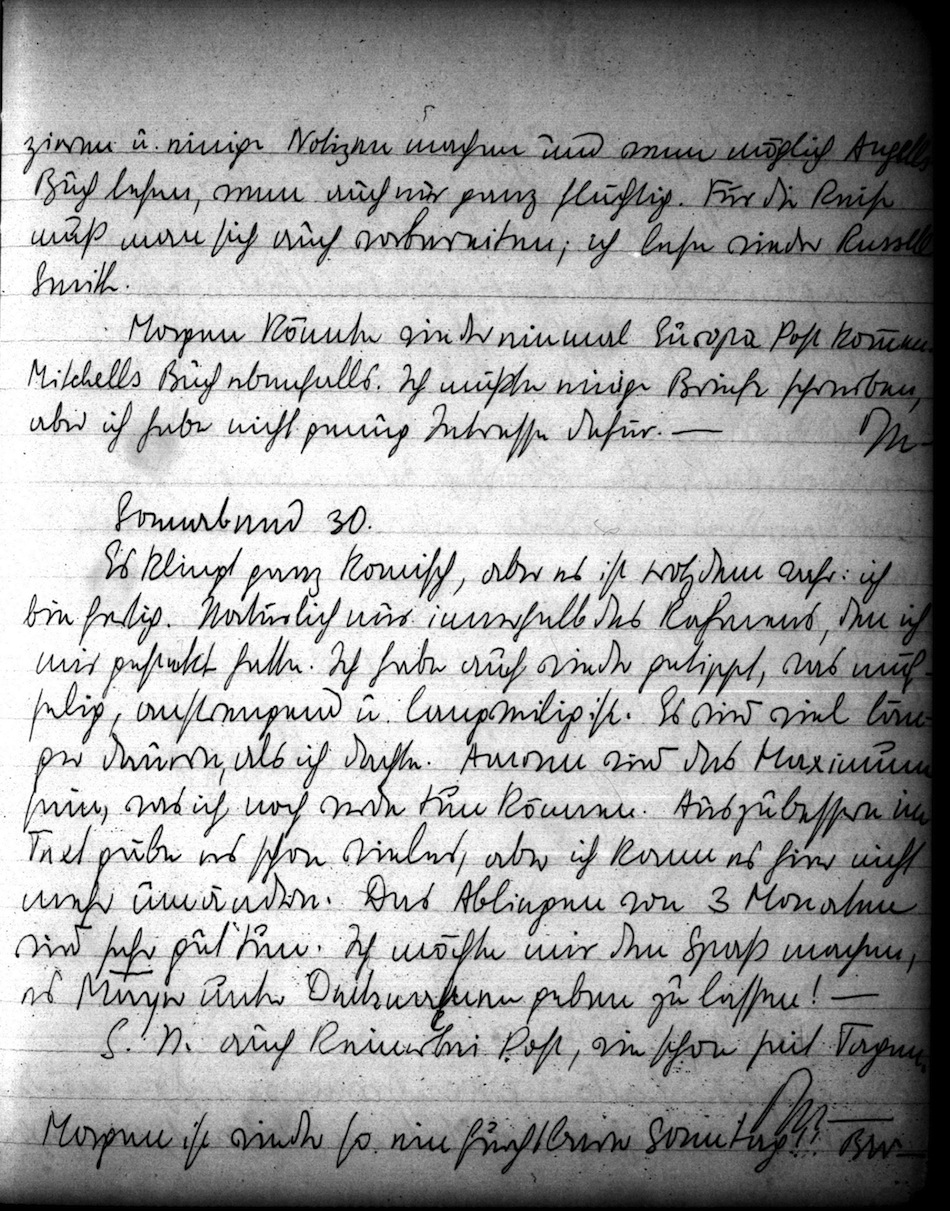 zieren u. einige Notizen machen und wenn möglich Angells
Buch lesen, wenn auch nur ganz flüchtig. Für die Reise
muß man sich auch vorbereiten; ich lese wieder Russell
Smith.
Morgen könnte wieder einmal Europa Post kommen.
Mitchells Buch ebenfalls. Ich müßte einige Briefe schreiben,
aber ich habe nicht genüg Interesse dafür. —
Sonnabend 30.
Es klingt ganz komisch, aber es ist trotzdem wahr: ich
bin fertig. Natürlich nur innerhalb des Rahmens, den ich
mir gesteckt hatte. Ich habe auch wieder getippt, was müh-
selig, anstrengend u. langweilig ist. Es wird viel län-
ger dauern, als ich dachte. Amorne wird das Maximum
sein, was ich noch werde tun können. Auszubessern im
Text gäbe es schon vieles, aber ich kann es hier nicht
mehr umändern. Das Abliegen von 3 Monaten
wird sehr gut tun. Ich möchte mir den Spaß machen,
es Meyer unter geben zu lassen! —
S. N. auch keinerlei Post, wie schon seit Tagen.
Morgen ist wieder so ein furchtbarer Sonntag!!! Bei-